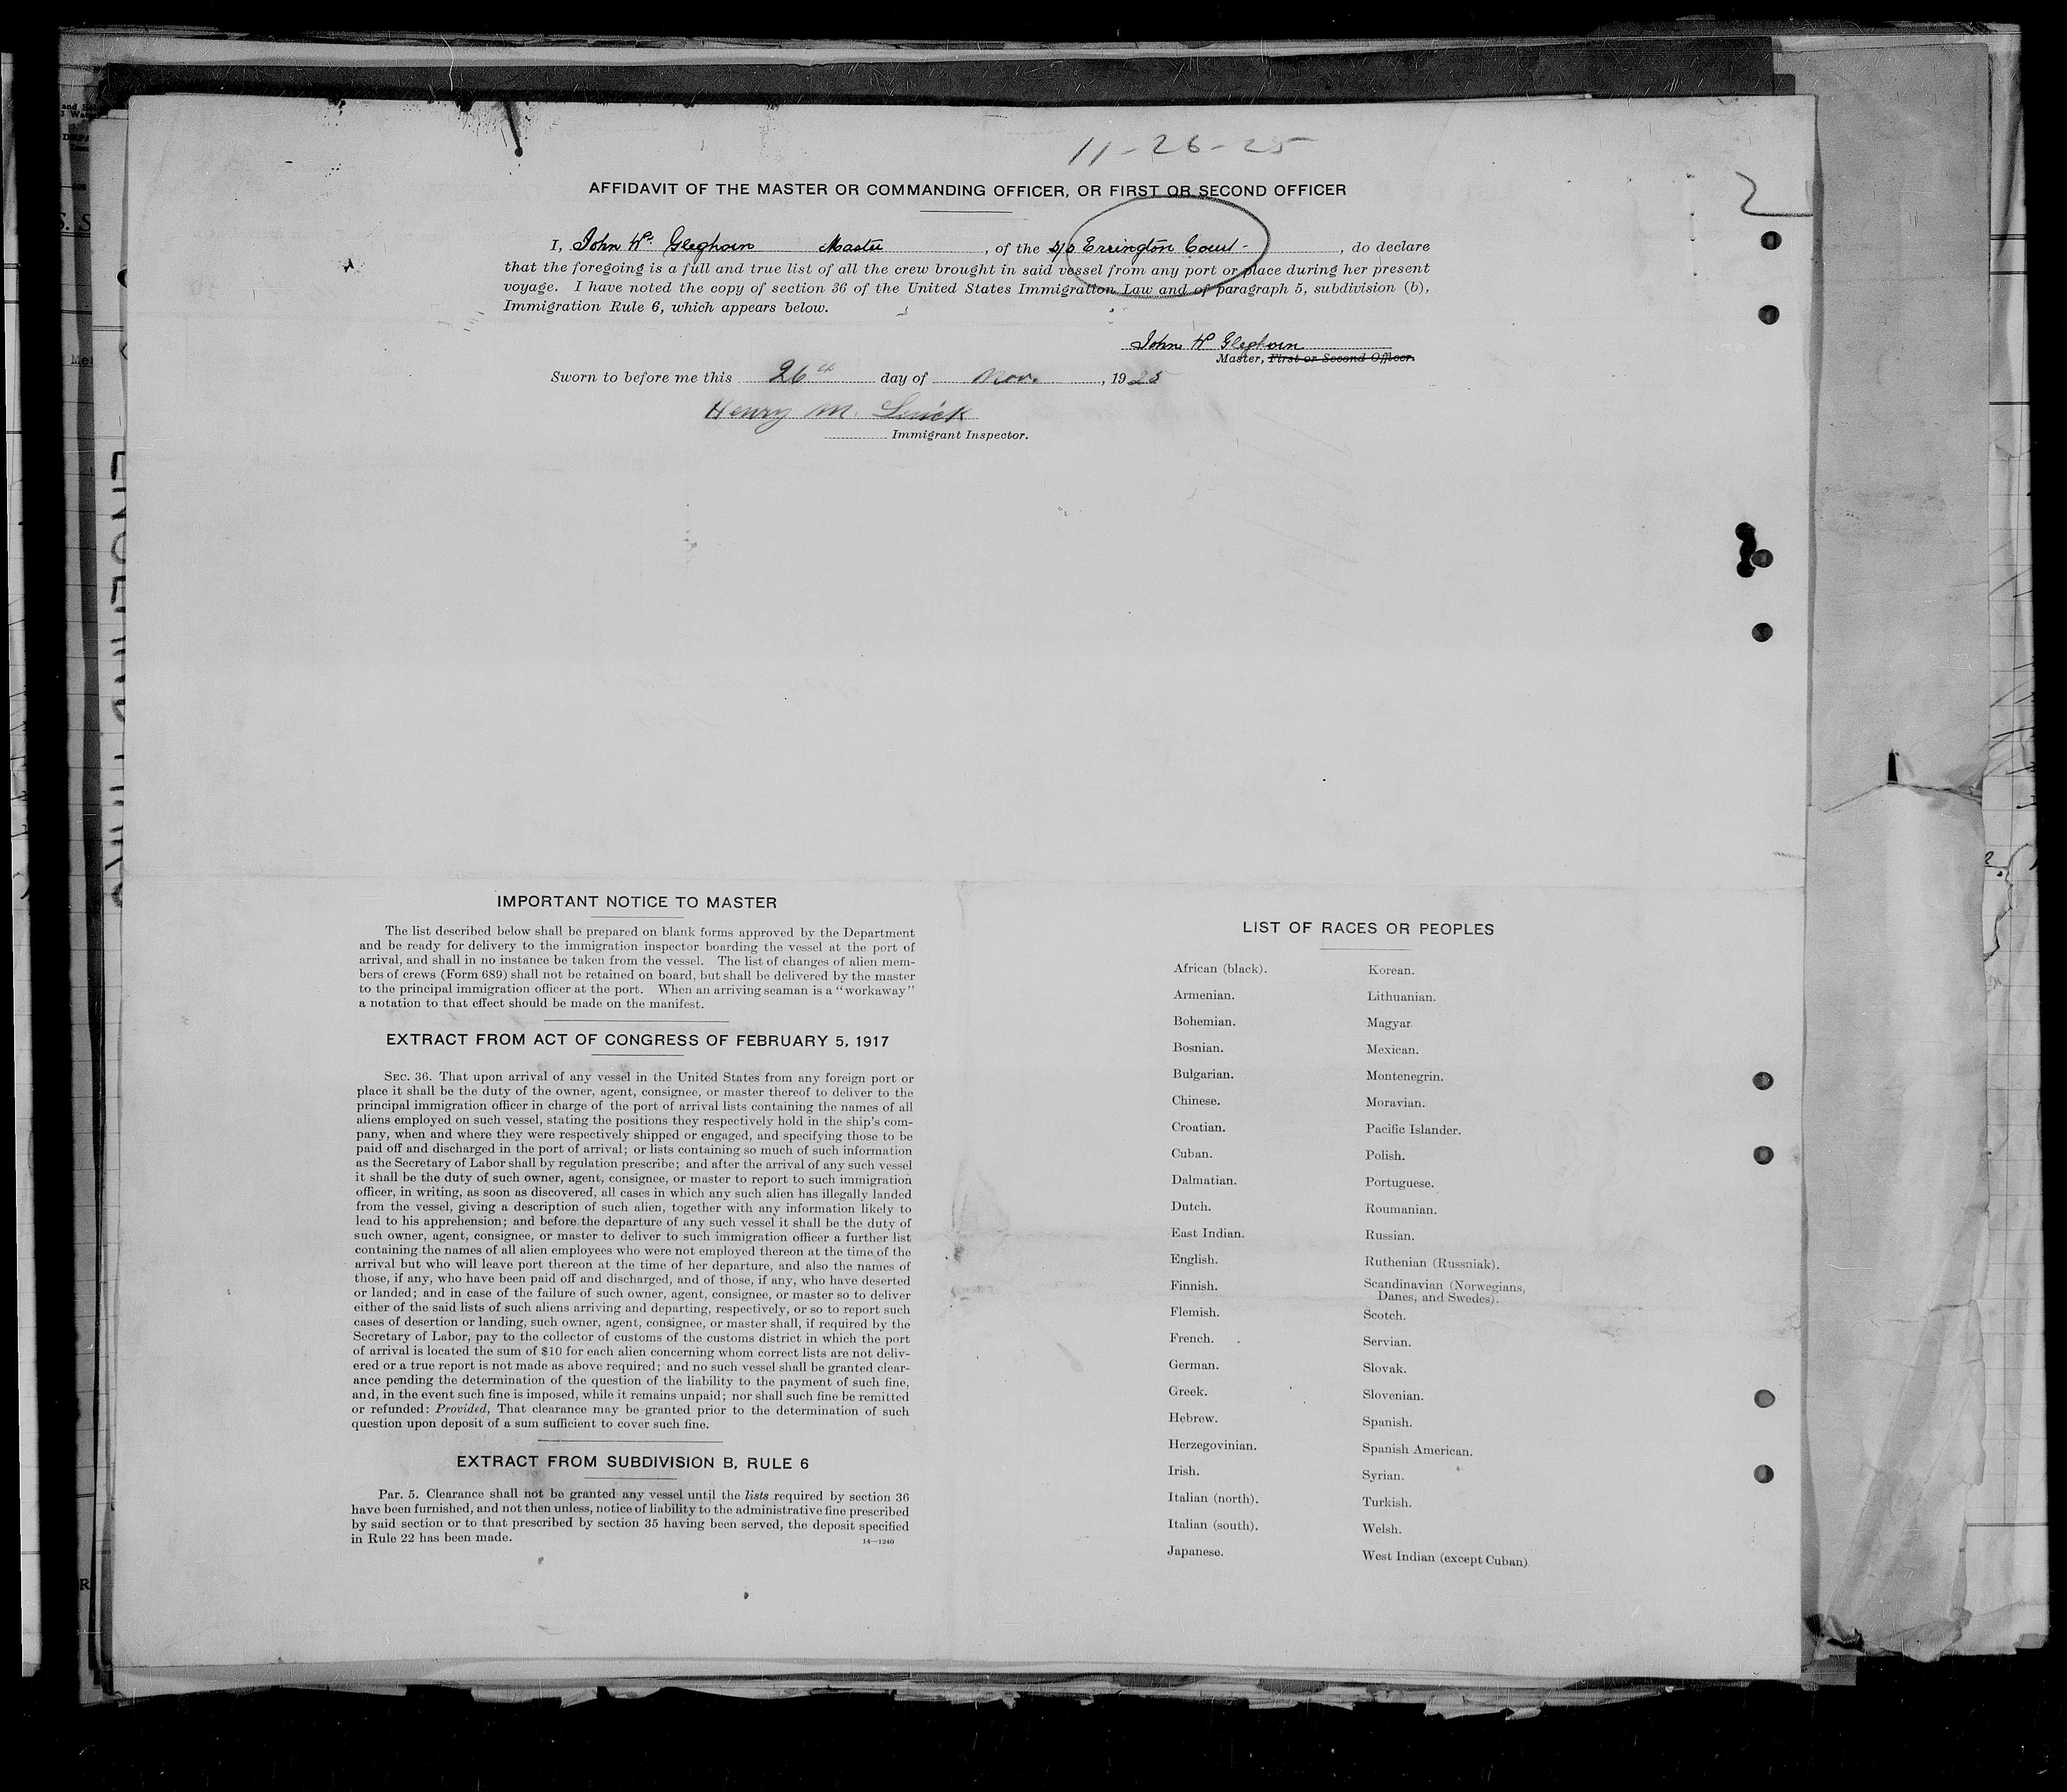 11-26-25
2
AFFIDAVIT OF THE MASTER OR COMMANDING OFFICER, OR FIRST OR SECOND OFFICER
I, John Wm. Gleghorn Master, of the S/S Errington Court -, do declare
that the foregoing is a full and true list of all the crew brought in said vessel from any port or place during her present
voyage. I have noted the copy of section 36 of the United States Immigration Law and of paragraph 5, subdivision (b),
Immigration Rule 6, which appears below.
John W Gleghorn
Master, First or Second Officer.
Sworn to before me this 26th day of Nov., 1925
Henry M.
Immigrant Inspector.
IMPORTANT NOTICE TO MASTER
The list described below shall be prepared on blank forms approved by the Department
and be ready for delivery to the immigration inspector boarding the vessel at the port of
arrival, and shall in no instance be taken from the vessel. The list of changes of alien mem-
bers of crews (Form 689) shall not be retained on board, but shall be delivered by the master
to the principal immigration officer at the port. When an arriving seaman is a "workaway"
a notation to that effect should be made on the manifest.
EXTRACT FROM ACT OF CONGRESS OF FEBRUARY 5, 1917
SEC. 36. That upon arrival of any vessel in the United States from any foreign port or
place it shall be the duty of the owner, agent, consignee, or master thereof to deliver to the
principal immigration officer in charge of the port of arrival lists containing the names of all
aliens employed on such vessel, stating the positions they respectively hold in the ship's com-
pany, when and where they were respectively shipped or engaged, and specifying those to be
paid off and discharged in the port of arrival; or lists containing so much of such information
as the Secretary of Labor shall by regulation prescribe; and after the arrival of any such vessel
it shall be the duty of such owner, agent, consignee, or master to report to such immigration
officer, in writing, as soon as discovered, all cases in which any such alien has illegally landed
from the vessel, giving a description of such alien, together with any information likely to
lead to his apprehension; and before the departure of any such vessel it shall be the duty of
such owner, agent, consignee, or master to deliver to such immigration officer a further list
containing the names of all alien employees who were not employed thereon at the time of the
arrival but who will leave port thereon at the time of her departure, and also the names of
those, if any, who have been paid off and discharged, and of those, if any, who have deserted
or landed; and in case of the failure of such owner, agent, consignee, or master so to deliver
either of the said lists of such aliens arriving and departing, respectively, or so to report such
cases of desertion or landing, such owner, agent, consignee, or master shall, if required by the
Secretary of Labor, pay to the collector of customs of the customs district in which the port
of arrival is located the sum of $10 for each alien concerning whom correct lists are not deliv-
ered or a true report is not made as above required; and no such vessel shall be granted clear-
ance pending the determination of the question of the liability to the payment of such fine,
and, in the event such fine is imposed, while it remains unpaid; nor shall such fine be remitted
or refunded: Provided, That clearance may be granted prior to the determination of such
question upon deposit of a sum sufficient to cover such fine.
EXTRACT FROM SUBDIVISION B, RULE 6
Par. 5. Clearance shall not be granted any vessel until the lists required by section 36
have been furnished, and not then unless, notice of liability to the administrative fine prescribed
by said section or to that prescribed by section 35 having been served, the deposit specified
in Rule 22 has been made.
14—1240
LIST OF RACES OR PEOPLES
African (black).
Armenian.
Bohemian.
Bosnian.
Bulgarian.
Chinese.
Croatian.
Cuban.
Dalmatian.
Dutch.
East Indian.
English.
Finnish.
Flemish.
French.
German.
Greek.
Hebrew.
Herzegovinian.
Irish.
Italian (north).
Italian (south).
Japanese.
Korean.
Lithuanian.
Magyar
Mexican.
Montenegrin.
Moravian.
Pacific Islander.
Polish.
Portuguese.
Roumanian.
Russian.
Ruthenian (Russniak).
Scandinavian (Norwegians,
Danes, and Swedes).
Scotch.
Servian.
Slovak.
Slovenian.
Spanish.
Spanish American.
Syrian.
Turkish.
Welsh.
West Indian (except Cuban)